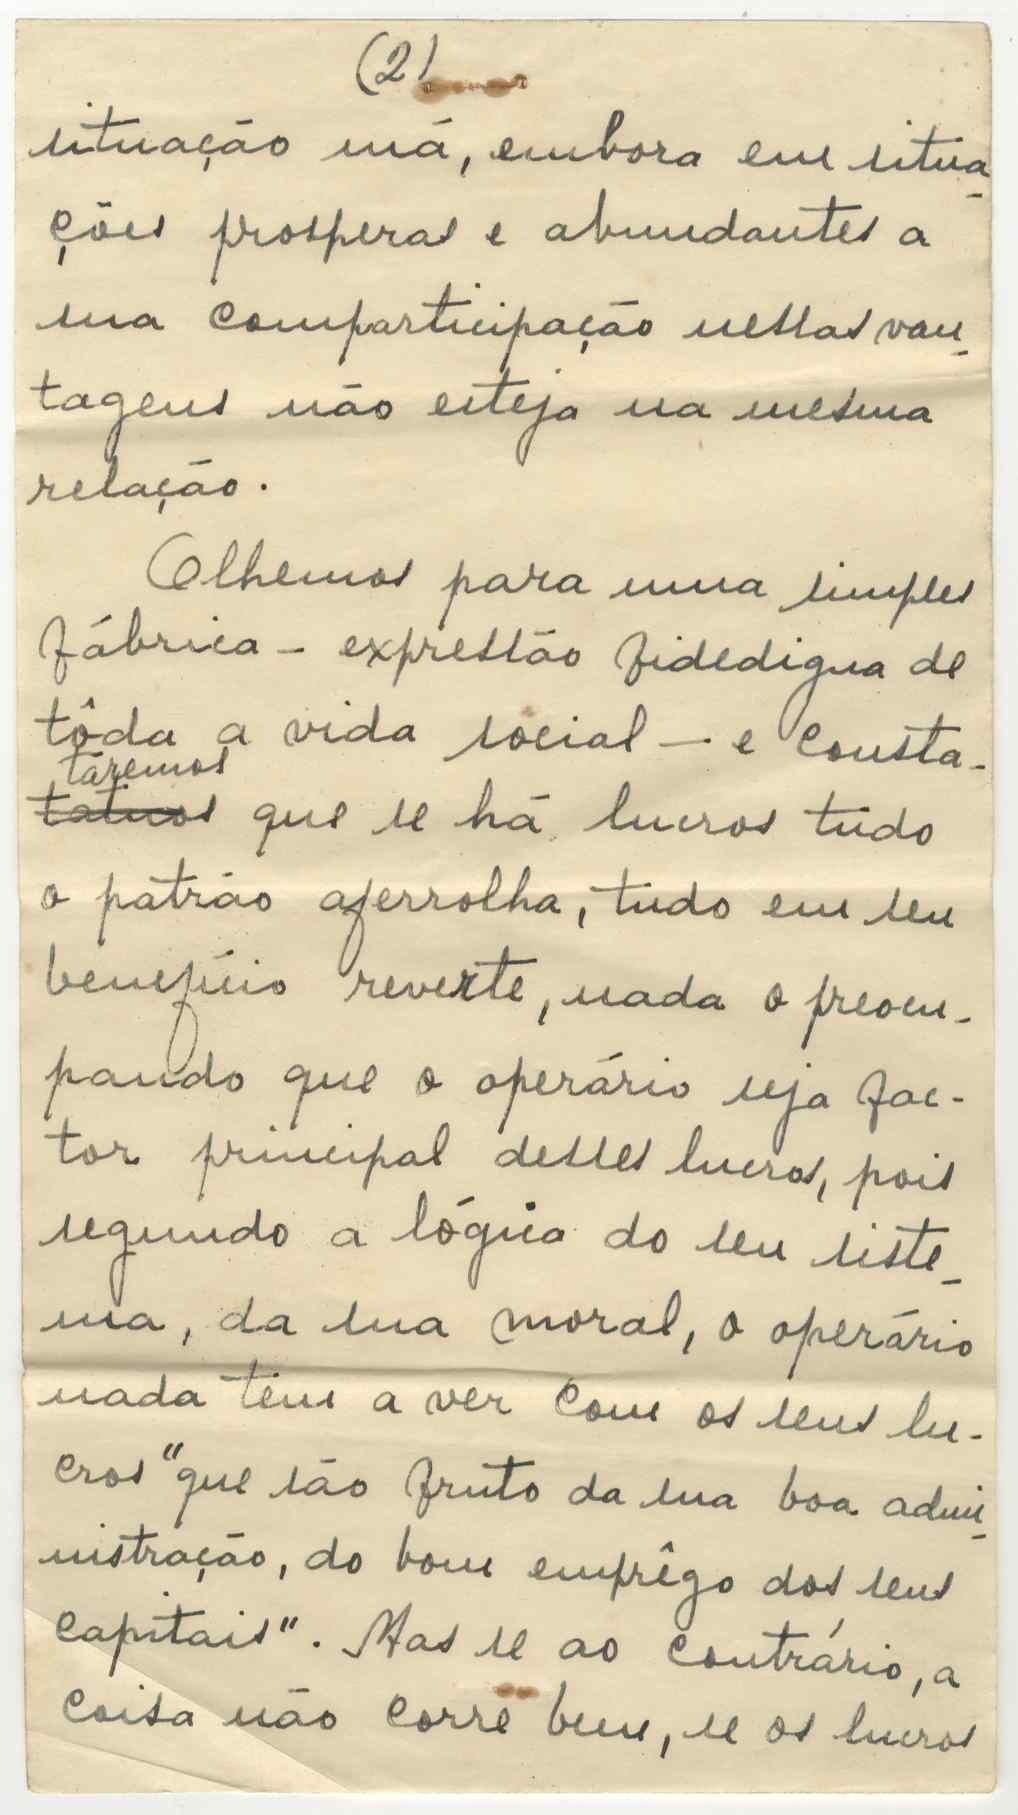 (2)
situação má, embora em situa-
ções prosperas e abundantes a
sua comparticipação nessas van-
tagens não esteja na mesma
relação.
Olhemos para uma simples
fábrica - expressão fidedigna de
tôda a vida social - e consta-
taremos
tatmos que se há lucros tudo
o patrão aferrolha, tudo em seu
benefício reverte, nada o preocu-
pando que o operário seja fac-
tor principal desses lucros, pois
segundo a lógica do seu siste-
ma, da sua moral, o operário
nada tem a ver com os seus lu-
cros "que são fruto da sua boa admi-
nistração, do bom emprêgo dos seus
capitais". Mas se ao contrário, a
coisa não corre bem, se os lucros